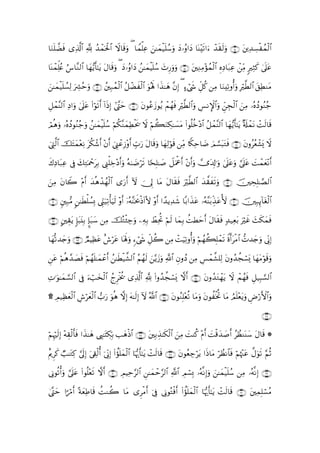 ٱلْمُفْسِدِينَ ۝ وَلَقَدْ ءَاتَيْنَا دَاوُۥدَ وَسُلَيْمَٰنَ عِلْمًا ۖ وَقَالَا ٱلْحَمْدُ لِلَّهِ ٱلَّذِى فَضَّلَنَا
عَلَىٰ كَثِيرٍ مِّنْ عِبَادِهِ ٱلْمُؤْمِنِينَ ۝ وَوَرِثَ سُلَيْمَٰنُ دَاوُۥدَ ۖ وَقَالَ يَٰٓأَيُّهَا ٱلنَّاسُ عُلِّمْنَا
مَنطِقَ ٱلطَّيْرِ وَأُوتِينَا مِن كُلِّ شَىْءٍ ۖ إِنَّ هَٰذَا لَهُوَ ٱلْفَضْلُ ٱلْمُبِينُ ۝ وَحُشِرَ لِسُلَيْمَٰنَ
جُنُودُهُۥ مِنَ ٱلْجِنِّ وَٱلْإِنسِ وَٱلطَّيْرِ فَهُمْ يُوزَعُونَ ۝ حَتَّىٰٓ إِذَآ أَتَوْا۟ عَلَىٰ وَادِ ٱلنَّمْلِ
قَالَتْ نَمْلَةٌ يَٰٓأَيُّهَا ٱلنَّمْلُ ٱدْخُلُوا۟ مَسَٰكِنَكُمْ لَا يَحْطِمَنَّكُمْ سُلَيْمَٰنُ وَجُنُودُهُۥ وَهُمْ
لَا يَشْعُرُونَ ۝ فَتَبَسَّمَ ضَاحِكًا مِّن قَوْلِهَا وَقَالَ رَبِّ أَوْزِعْنِىٓ أَنْ أَشْكُرَ نِعْمَتَكَ ٱلَّتِىٓ
أَنْعَمْتَ عَلَىَّ وَعَلَىٰ وَٰلِدَىَّ وَأَنْ أَعْمَلَ صَٰلِحًا تَرْضَىٰهُ وَأَدْخِلْنِى بِرَحْمَتِكَ فِى عِبَادِكَ
ٱلصَّٰلِحِينَ ۝ وَتَفَقَّدَ ٱلطَّيْرَ فَقَالَ مَا لِىَ لَآ أَرَى ٱلْهُدْهُدَ أَمْ كَانَ مِنَ
ٱلْغَآئِبِينَ ۝ لَأُعَذِّبَنَّهُۥ عَذَابًا شَدِيدًا أَوْ لَأَا۟ذْبَحَنَّهُۥٓ أَوْ لَيَأْتِيَنِّى بِسُلْطَٰنٍ مُّبِينٍ ۝
فَمَكَثَ غَيْرَ بَعِيدٍ فَقَالَ أَحَطتُ بِمَا لَمْ تُحِطْ بِهِۦ وَجِئْتُكَ مِن سَبَإٍۭ بِنَبَإٍ يَقِينٍ ۝ إِنِّى
وَجَدتُّ ٱمْرَأَةً تَمْلِكُهُمْ وَأُوتِيَتْ مِن كُلِّ شَىْءٍ وَلَهَا عَرْشٌ عَظِيمٌ ۝ وَجَدتُّهَا
وَقَوْمَهَا يَسْجُدُونَ لِلشَّمْسِ مِن دُونِ ٱللَّهِ وَزَيَّنَ لَهُمُ ٱلشَّيْطَٰنُ أَعْمَٰلَهُمْ فَصَدَّهُمْ عَنِ
ٱلسَّبِيلِ فَهُمْ لَا يَهْتَدُونَ ۝ أَلَّا يَسْجُدُوا۟ لِلَّهِ ٱلَّذِى يُخْرِجُ ٱلْخَبْءَ فِى ٱلسَّمَٰوَٰتِ
وَٱلْأَرْضِ وَيَعْلَمُ مَا تُخْفُونَ وَمَا تُعْلِنُونَ ۝ ٱللَّهُ لَآ إِلَٰهَ إِلَّا هُوَ رَبُّ ٱلْعَرْشِ ٱلْعَظِيمِ ۩
۝
۞ قَالَ سَنَنظُرُ أَصَدَقْتَ أَمْ كُنتَ مِنَ ٱلْكَٰذِبِينَ ۝ ٱذْهَب بِّكِتَٰبِى هَٰذَا فَأَلْقِهْ إِلَيْهِمْ
ثُمَّ تَوَلَّ عَنْهُمْ فَٱنظُرْ مَاذَا يَرْجِعُونَ ۝ قَالَتْ يَٰٓأَيُّهَا ٱلْمَلَؤُا۟ إِنِّىٓ أُلْقِىَ إِلَىَّ كِتَٰبٌ كَرِيمٌ
۝ إِنَّهُۥ مِن سُلَيْمَٰنَ وَإِنَّهُۥ بِسْمِ ٱللَّهِ ٱلرَّحْمَٰنِ ٱلرَّحِيمِ ۝ أَلَّا تَعْلُوا۟ عَلَىَّ وَأْتُونِى
مُسْلِمِينَ ۝ قَالَتْ يَٰٓأَيُّهَا ٱلْمَلَؤُا۟ أَفْتُونِى فِىٓ أَمْرِى مَا كُنتُ قَاطِعَةً أَمْرًا حَتَّىٰ